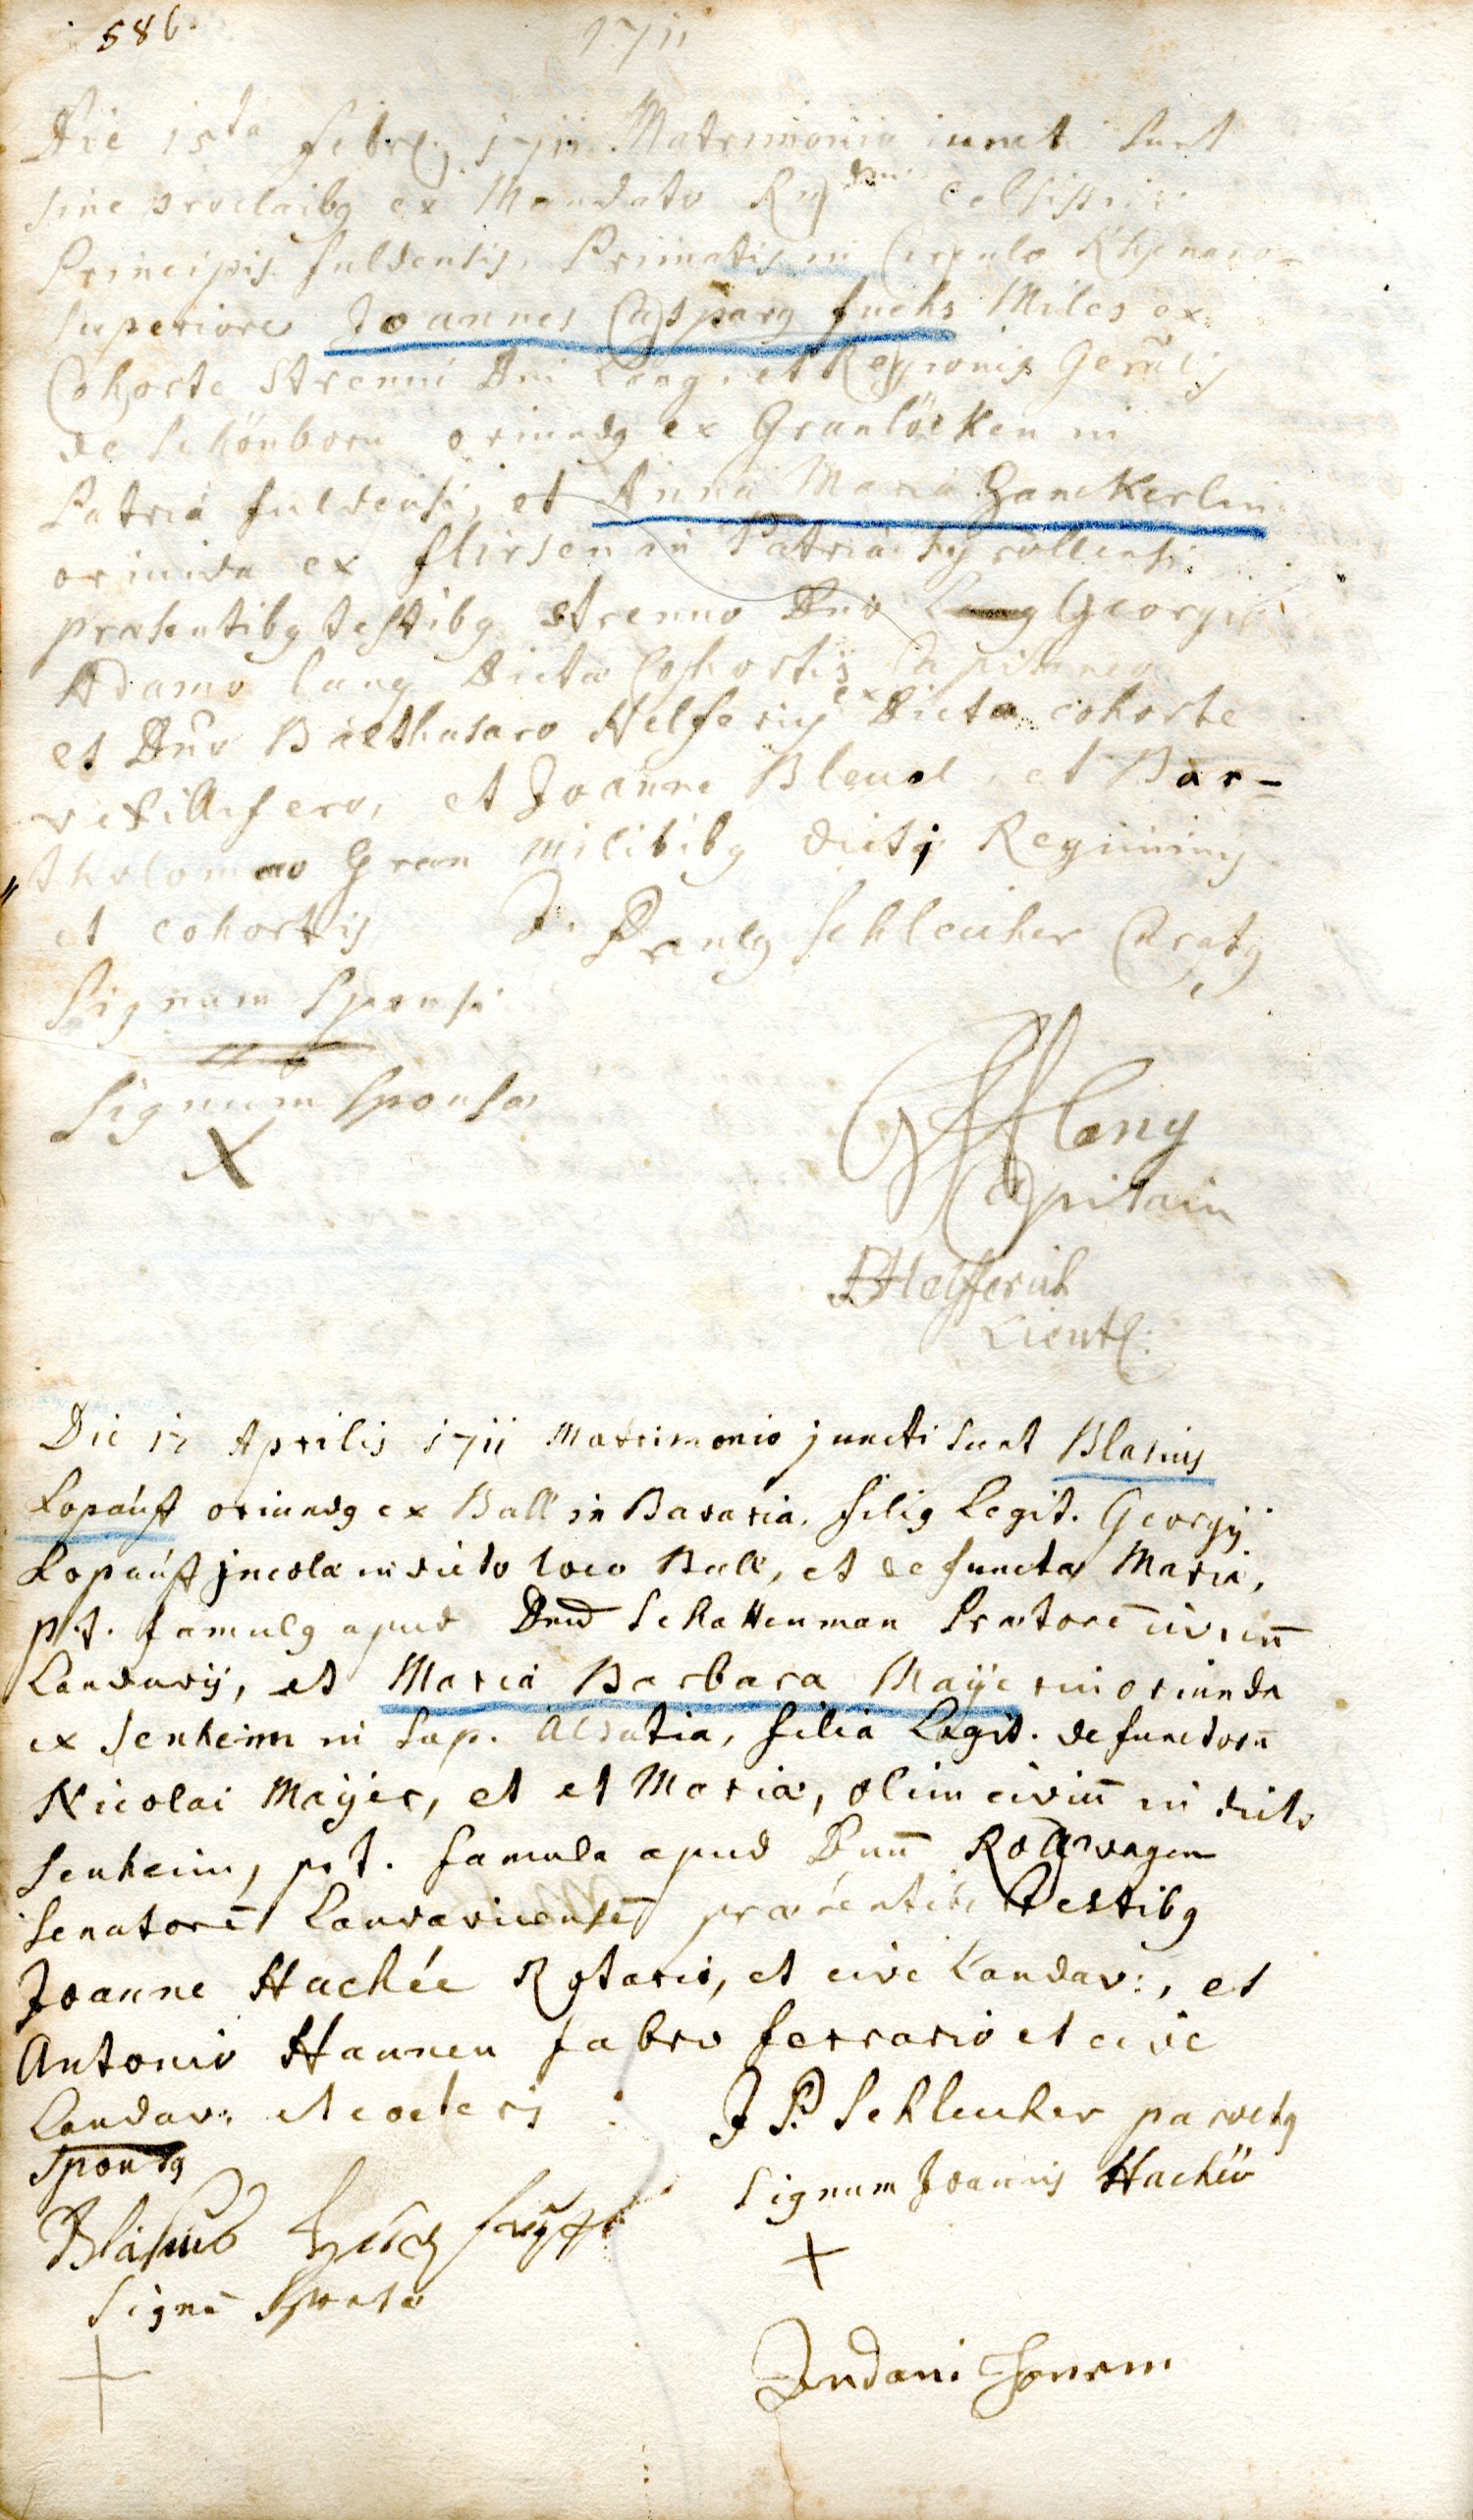 586
1711
Die 15ta febrs 1711 Matrimonio iuncti sunt
sine proclaibg ex Mandato Rm
Principis fuldensis, Primatis in Circulo Rhenano-
superiore Joannes Casparg fuchs Miles ex
Cohorte Strenui Dni Lang, et Regionis
de Schönborn oriundg ex in
Patria fuldensi, et Anna Maria Ganckerlin
oriunda ex flirsen in Patria Tyrollensi
praesentibg testibg strenuo Dno Georgio
Adamo Lang Dictae Cohortis Capitaneo
et Dno Balthasaro Helferig ex Dicta cohorte
vexillifero, et Joanne Bleud, et Bar-
tholomaeo Gran militibg dicti Regiminis
et cohortis J. Paulg Schleicher Curatg
Signum Sponsi
Signum Sponsae
X
Lang
Capitain
BHelfferich
Lieut:
Die 17 Aprilis 1711 Matrimonio juncti sunt Blasius
Lopauft oriundg ex Ball in Bavaria, filig Legit. Georgÿ
Lopauft jncolae in dicto loco Ball, et defunctae Maria,
p.t. famulg apud Dnm Schattenman Praetorē
Landavÿ, et Maria Barbara Maÿerin oriunda
ex Senheim in sup. Alsatia, filia Legit. defunctorū
Nicolai Maÿer, et et Mariae, olim civiū in dicto
Senheim, p.t. famula apud Dnū
Senatorē Landaviensē praesentibg Testibg
Joanne Hachée Rotario, et cive Landav:, et
Antonio Hannen fabro ferrario et cive
Landav: et coeteris J P. Schleicher parochg
Sponsg Signum Joannis Hachée
Blasius +
Signū Sponsae
+